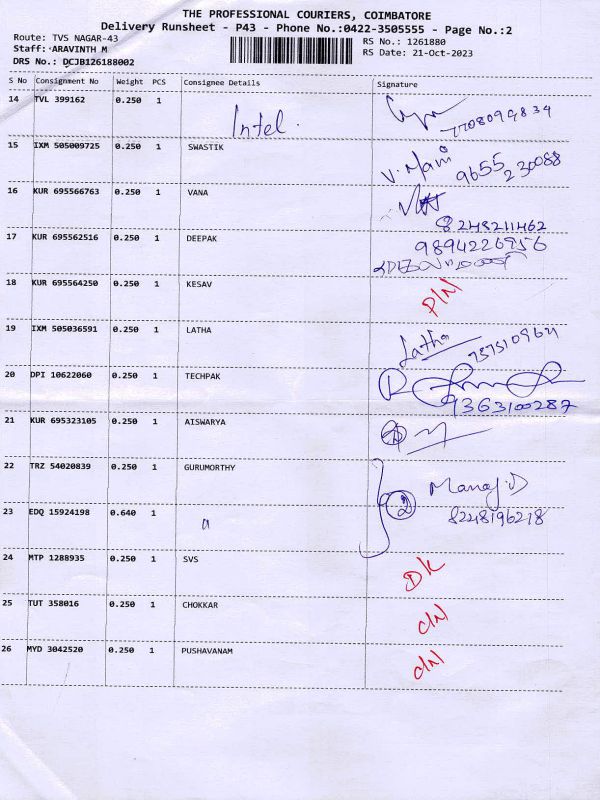 THE PROFESSIONAL COURIERS, COIMBATORE
Delivery Runsheet - P43 - Phone No.:0422-3505555 - Page No.:2
Route: TVS NAGAR-43
Staff: ARAVINTH M
DRS No.: DCJB126188002
RS No.: 1261880
RS Date: 21-Oct-2023
S No Consignment No Weight PCS Consignee Details Signature
14 TVL 399162 0.250 1 Intel. 7708099834
15 IXM 505009725 0.250 1 SWASTIK V. Mani 9655230088
16 KUR 695566763 0.250 1 VANA 8248211462
17 KUR 695562516 0.250 1 DEEPAK 9894226956
18 KUR 695564250 0.250 1 KESAV P/N
19 IXM 505036591 0.250 1 LATHA Latha
20 DPI 10622060 0.250 1 TECHPAK 9363100287
21 KUR 695323105 0.250 1 AISWARYA
22 TRZ 54020839 0.250 1 GURUMORTHY Manoj.D
23 EDQ 15924198 0.640 1 2 8248196218
24 MTP 1288935 0.250 1 SVS DK
25 TUT 358016 0.250 1 CHOKKAR C/N
26 MYD 3042520 0.250 1 PUSHAVANAM C/N